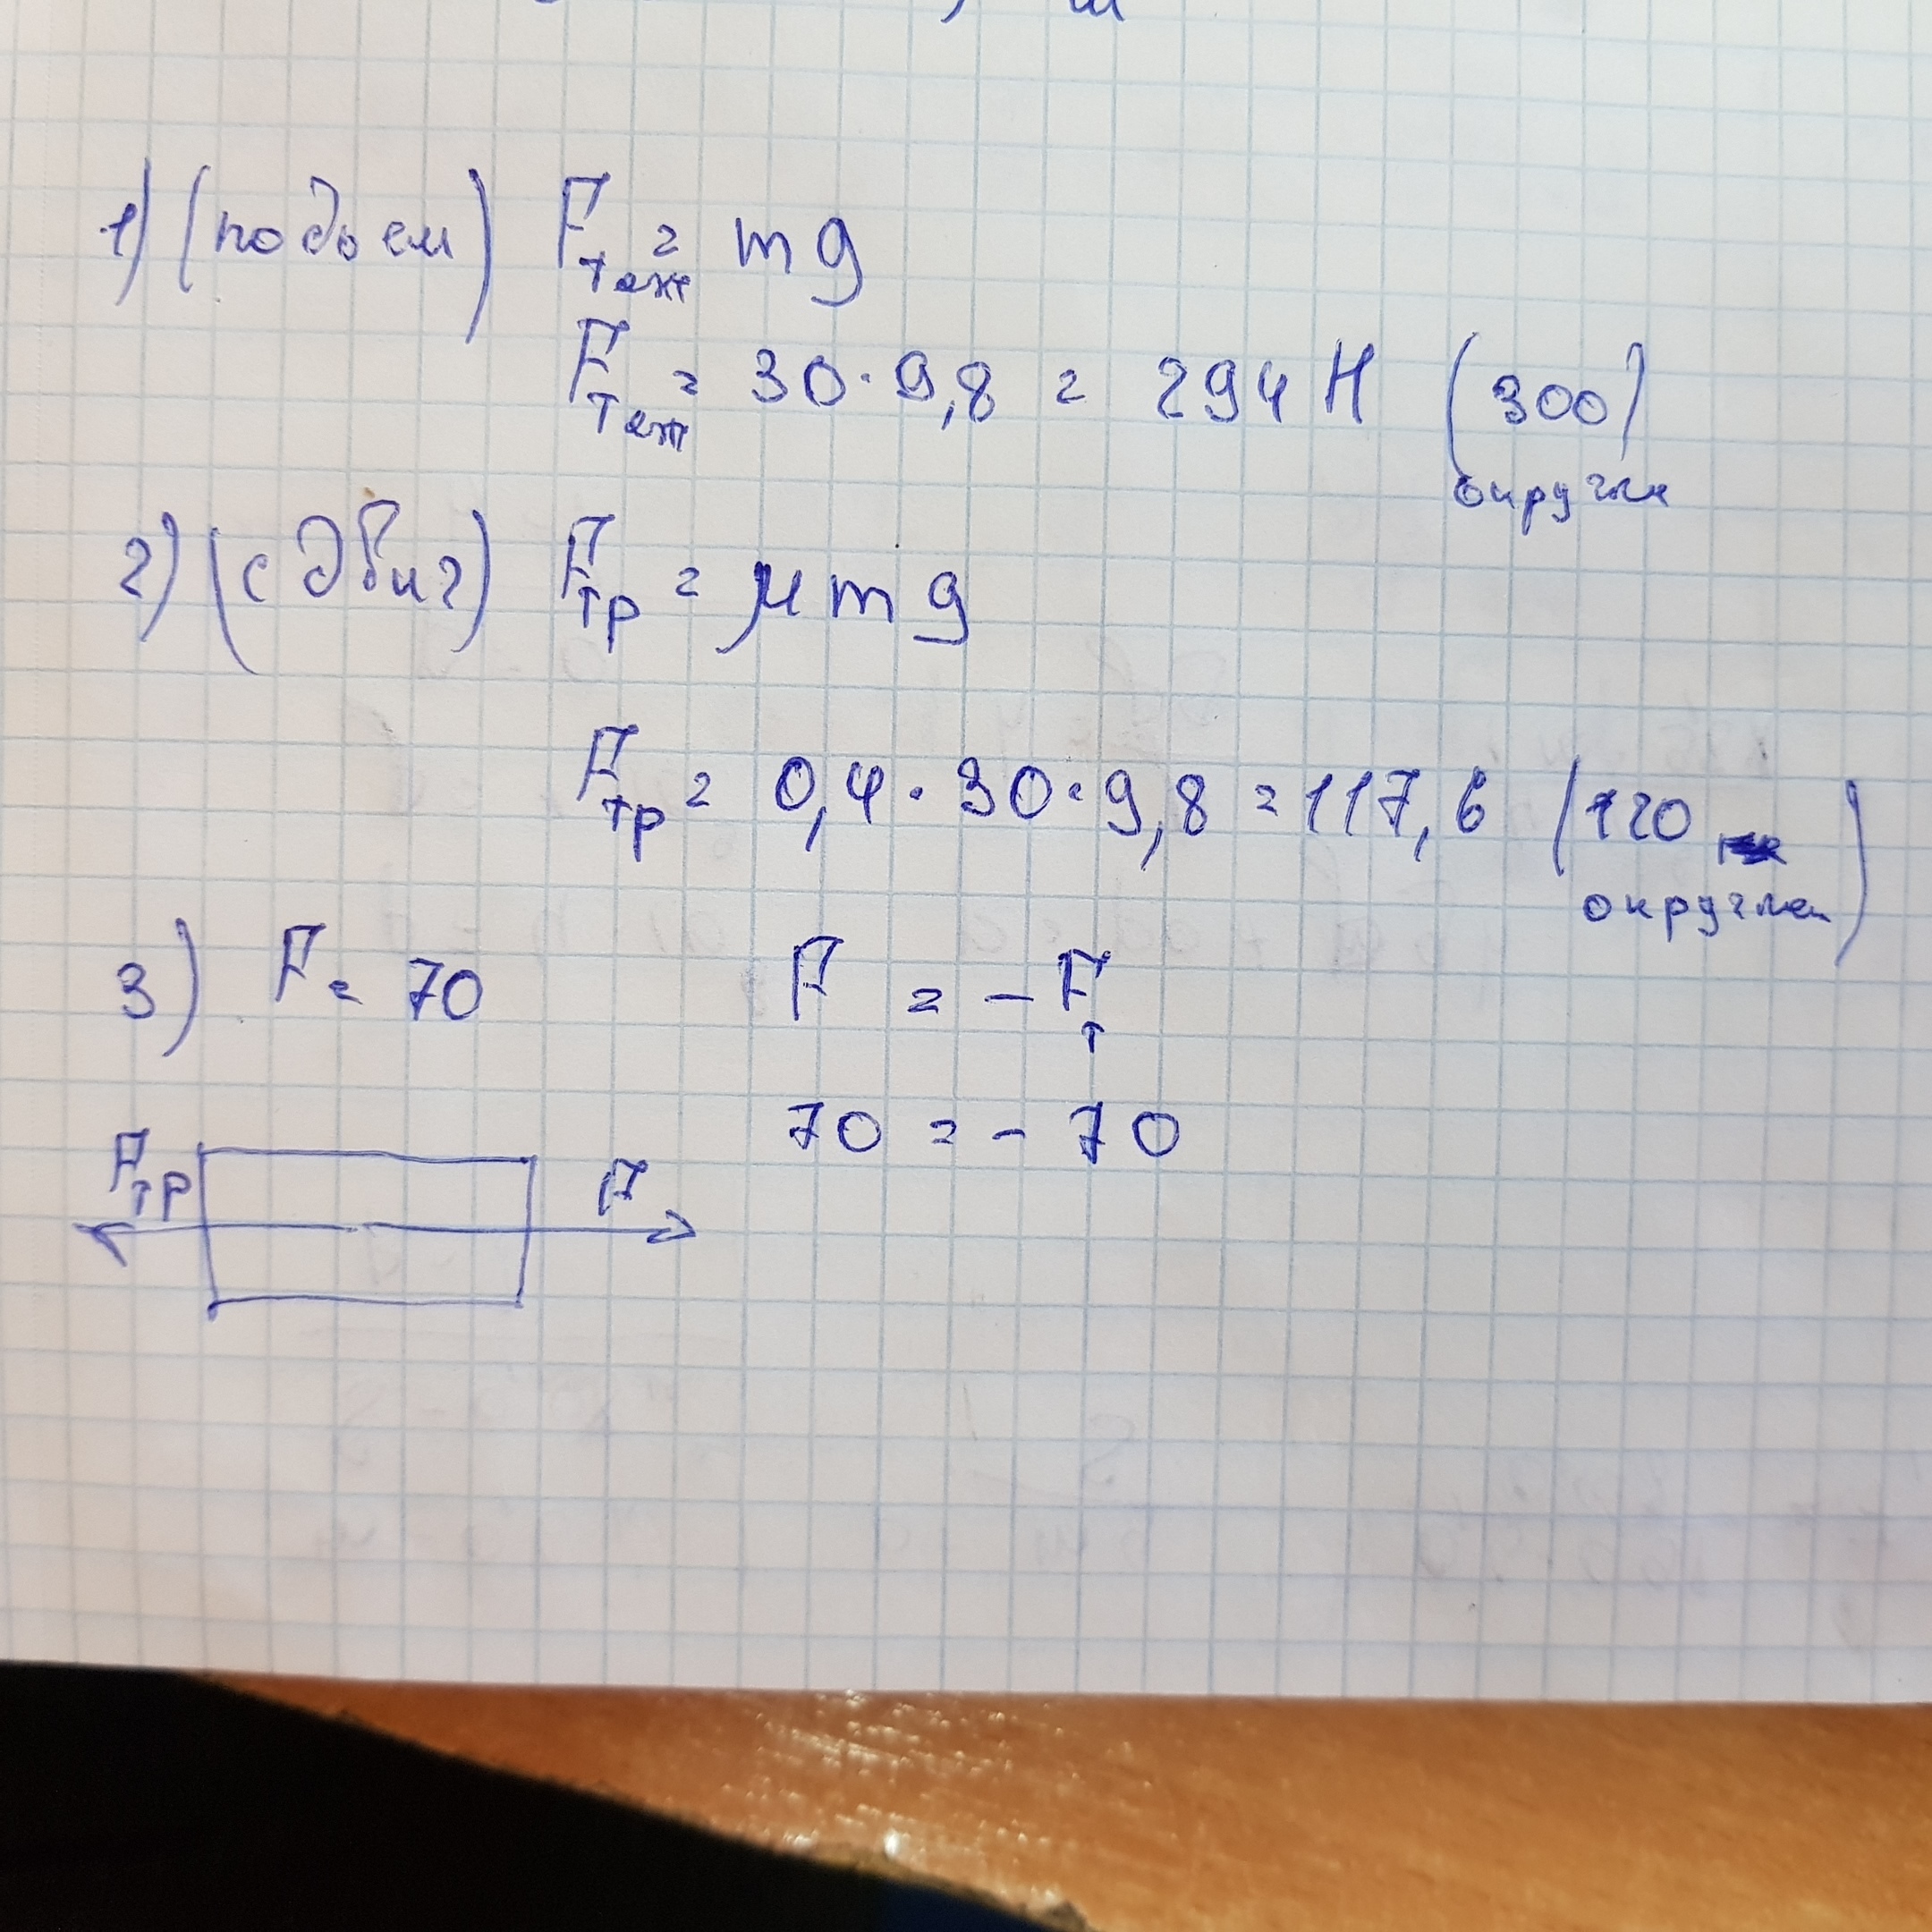 1) (подъем) Fтяж = mg
Fтяж = 30 · 9,8 = 294 Н (300)
округл
2) (сдвиг) Fтр = μmg
Fтр = 0,4 · 30 · 9,8 = 117,6 (120
округляем)
3) F = 70 F = -Fт
70 = - 70
Fтр F